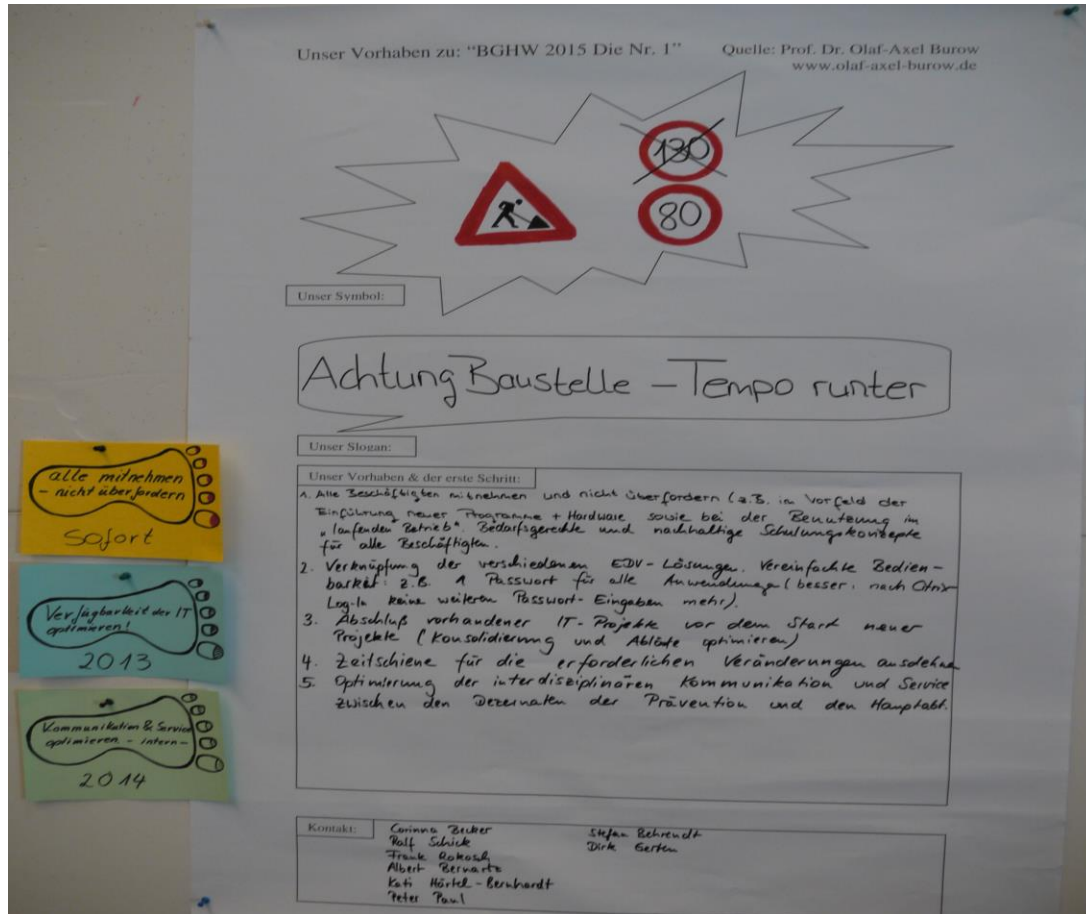 Unser Vorhaben zu: "BGHW 2015 Die Nr. 1"
Quelle: Prof. Dr. Olaf-Axel Burow
www.olaf-axel-burow.de
130
80
Unser Symbol:
Achtung Baustelle – Tempo runter
Unser Slogan:
Unser Vorhaben & der erste Schritt:
1. Alle Beschäftigten mitnehmen und nicht überfordern (z.B. im Vorfeld der
Einführung neuer Programme + Hardware sowie bei der Benutzung im
"laufenden Betrieb". Bedarfsgerechte und nachhaltige Schulungskonzepte
für alle Beschäftigten.
2. Verknüpfung der verschiedenen EDV-Lösungen. Vereinfachte Bedien-
barkeit: z.B. 1 Passwort für alle Anwendungen (besser: nach Citrix
Log-In keine weiteren Passwort-Eingaben mehr).
3. Abschluß vorhandener IT-Projekte vor dem Start neuer
Projekte (Konsolidierung und Abläufe optimieren)
4. Zeitschiene für die erforderlichen Veränderungen ausdehnen
5. Optimierung der interdisziplinären Kommunikation und Service
zwischen den Dezernaten der Prävention und den Hauptabt.
alle mitnehmen
– nicht überfordern
Sofort
Verfügbarkeit der IT
optimieren!
2013
Kommunikation & Service
optimieren – intern –
2014
Kontakt:
Corinna Becker
Ralf Schick
Frank Rokosch
Albert Bernartz
Kati Härtel-Bernhardt
Peter Paul
Stefan Behrendt
Dirk Gerten